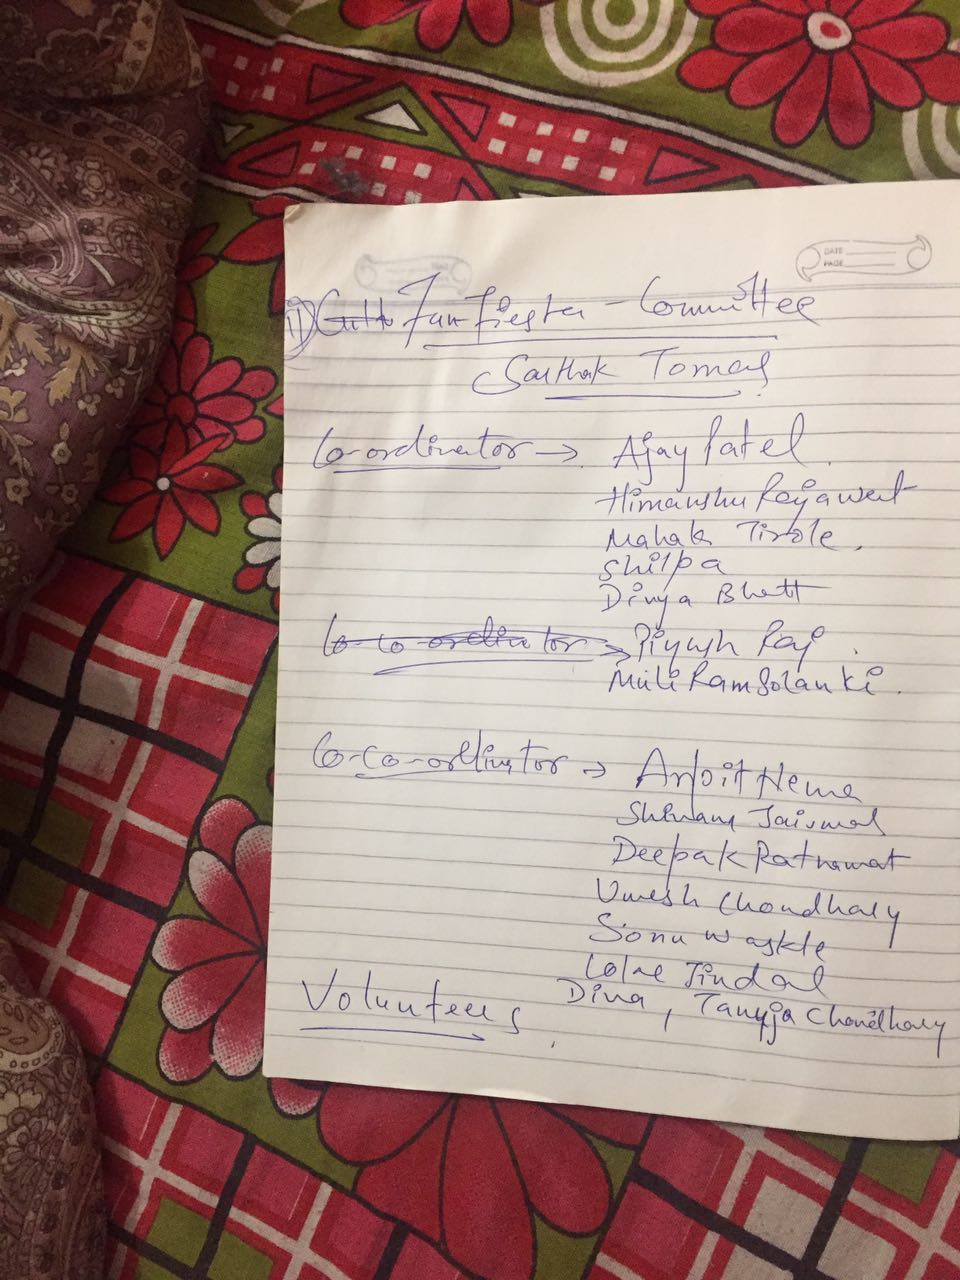 DATE
PAGE
11) Fun Fiesta - Committee
Sarthak Tomar
Co-ordinator → Ajay Patel
Himanshu Rajawat
Mahak Tirole
Shilpa
Divya Bhatt
Co-co-ordinator → Piyush Raj
Muli Ram Solanki
Co-co-ordinator → Arpit Nema
Shivang Jaiswal
Deepak Ratnawat
Umesh Choudhary
Sonu Waskle
Jindal
Diva, Tanuja Choudhary
Volunteers